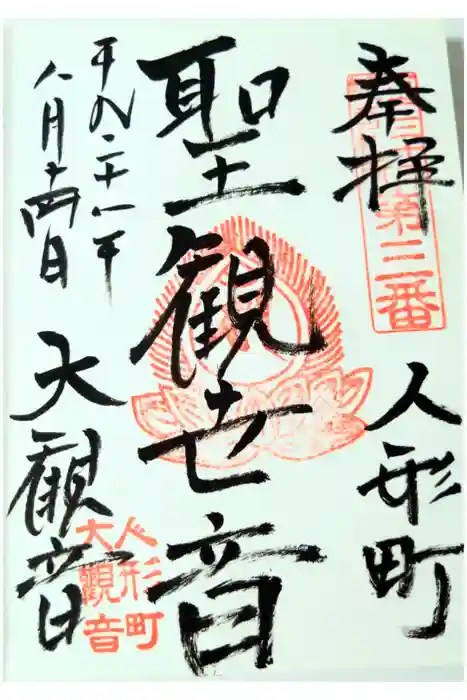 奉拝
第三番
人形町
聖観世音
平成二十八年
八月十四日
大観音
人形町
大観音